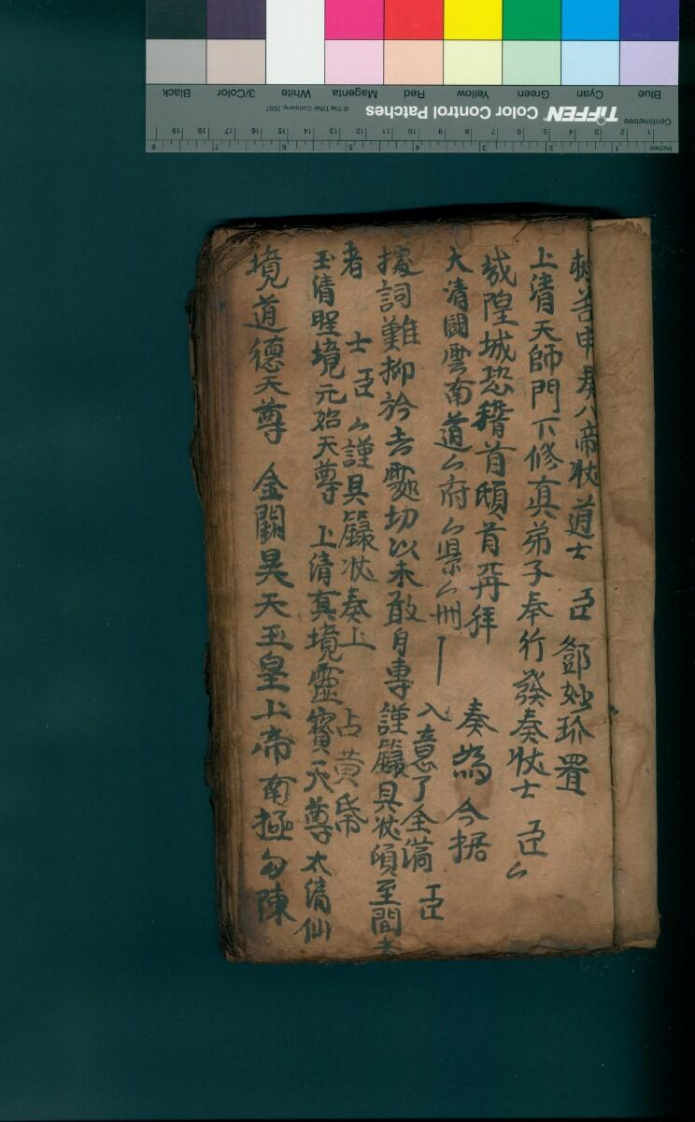 申奏八帝狀道士 臣 鄧妙珍置
上清天師門下修真弟子奉行發奏狀士 臣ム
城隍城恐稽首頓首再拜 奏為 今据
大清國雲南道ム府ム県ム州 入意了全滿 臣
援詞難抑於去處切以未敢自專謹籙具狀頃至聞者
者 士臣ム謹具籙狀奏上 占黃帋
玉清聖境元始天尊 上清真境靈寶天尊 太清仙
境道德天尊 金闕昊天玉皇上帝 南極勾陳
Blue
Cyan
Green
Yellow
Red
Magenta
White
3/Color
Black
TIFFEN Color Control Patches
© The Tiffen Company, 2007
Centimetres
1 2 3 4 5 6 7 8 9 10 11 12 13 14 15 16 17 18 19
Inches
1 2 3 4 5 6 7 8